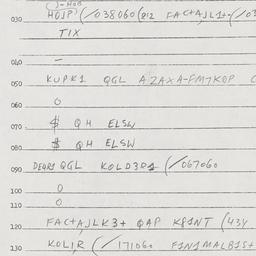 030 HOJP) (/038060 (812 FAC+AJL1+-(/03
TIX
040 —
050 KUPK1 QGL AZAXA-FM7KQP C
060 0
070 $ QH ELSW
080 $ QH ELSW
090 DEQR1 QGL KOLD3D1 (/067060
100 0
110 0
120 FAC+AJLK3+ QAP K81NT (434
130 KOLIR (/171060 F1N1MALB1S+